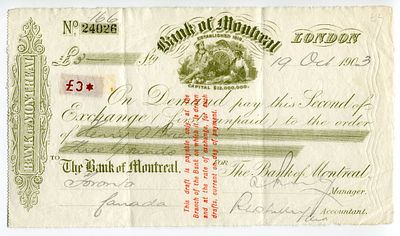 166
No 24026
Bank of Montreal
ESTABLISHED 1817
LONDON
£3 Stg
CAPITAL $12,000,000.
19 Oct 1903
£3*
On Demand pay this Second of
Exchange (First unpaid) to the order
of Henry
Three Pounds
TO FOR
The Bank of Montreal. The Bank of Montreal.
Toronto
Manager.
Canada
Accountant.
BANK OF MONTREAL
This draft is payable only at the
Branch of the Bank on which it is drawn
and at the rate of exchange, for such
drafts, current on day of payment.